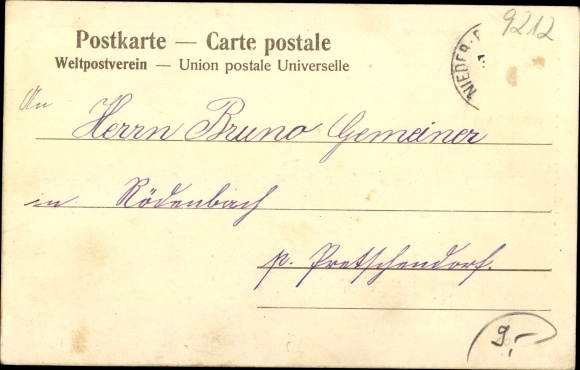 9212
Postkarte — Carte postale
Weltpostverein — Union postale Universelle
NIEDER-
An
Herrn Bruno Gemeiner
in Rödenbach
p. Pretschendorf.
9,-